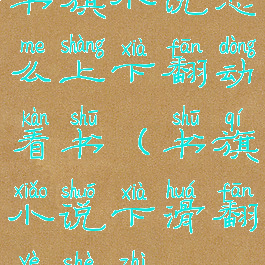 书旗小说怎
me shàng xià fān dòng
么上下翻动
kàn shū shū qí
看书（书旗
xiǎo shuō xià huá fān
小说下滑翻
yè shè zhì